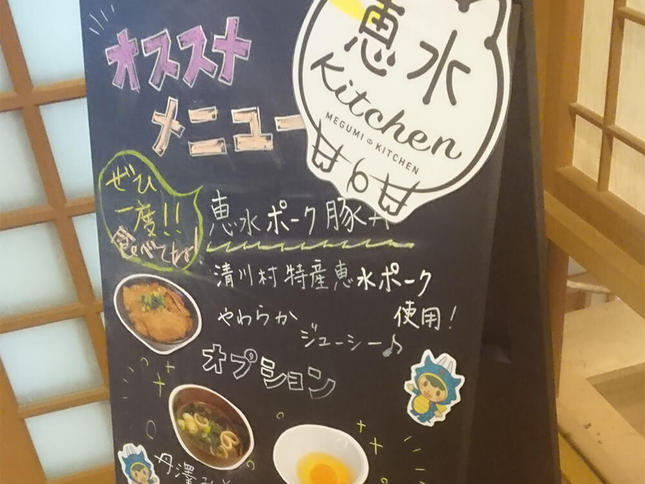 オススメ
メニュー
恵水
Kitchen
MEGUMI KITCHEN
ぜひ
一度!!
食べてね!
恵水ポーク豚丼
清川村特産恵水ポーク
使用!
やわらか
ジューシー♪
オプション
丹澤